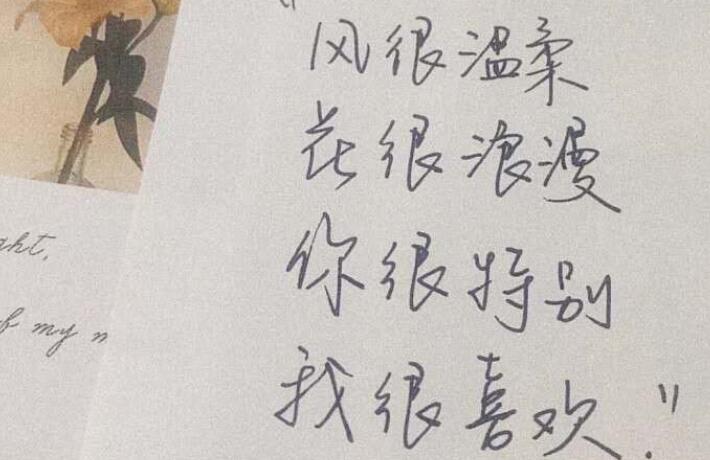 "风很温柔
花很浪漫
你很特别
我很喜欢."
ght,
of my